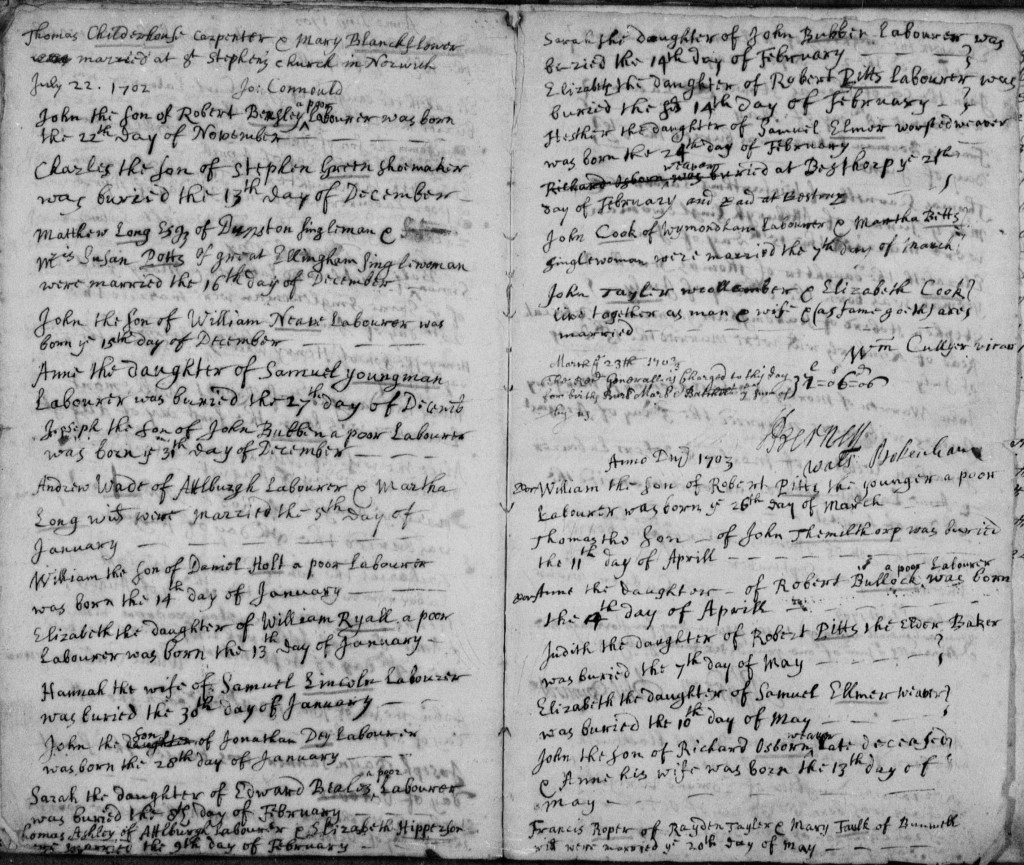 Thomas Childerhouse Carpenter & Mary Blanckflower
married at St Stephens Church in Norwich
July 22. 1702 Jo: Connould
John the son of Robert Bensley a poor Labourer was born
the 22th day of November
Charles the son of Stephen Green shoemaker
was buried the 13th day of December
Matthew Long Esqz of Dunston singleman &
Mris Susan Potts of great Ellingham singlewoman
were married the 16th day of December
John the son of William Neave Labourer was
born ye 15th day of December
Anne the daughter of Samuel youngman
Labourer was buried the 27th day of Decemb
Joseph the son of John Bubben a poor Labourer
was born ye 31th day of December
Andrew Wade of Attlburgh Labourer & Martha
Long wid were married the 5th day of
January
William the son of Daniel Holt a poor Labourer
was born the 14th day of January
Elizabeth the daughter of William Ryall a poor
Labourer was born the 13th day of January
Hannah the wife of Samuel Lincoln Labourer
was buried the 30th day of January
John the son of Jonathan Dey Labourer
was born the 28th day of January
Sarah the daughter of Edward Beales a poor Labourer
was buried the 8th day of February
Thomas Ashley of Attlburgh Labourer & Elizabeth Hipperson
were married the 9th day of February
Sarah the daughter of John Bubben Labourer was
buried the 14th day of February
Elizabeth the daughter of Robert Pitts Labourer was
buried the 14th day of February
Hesther the daughter of Samuel Elmer worstedweaver
was born the 24th day of February
Richard Osborn weavour was buried at Besthorp ye 21th
day of February and paid at
John Cook of Wymondham Labourer & Martha Betts
singlewoman were married the 7th day of March
John Tayler woollcomber & Elizabeth Cook
live together as man & wife & (as fame goeth) are
married
Wm Cullyer vicar
March ye 23th 1703
charged to this day
for births
3l=06=06
by us
JBerney
Anno Dni 1703
Walt Bokenham
poor William the son of Robert Pitts the younger a poor
Labourer was born ye 26th day of March
Thomas the son of John Themilthorp was buried
the 11th day of Aprill
poor Anne the daughter of Robert Bullock a poor Labourer was born
the 4th day of Aprill
Judith the daughter of Robert Pitts the Elder Baker
was buried the 7th day of May
Elizabeth the daughter of Samuel Ellmer weaver
was buried the 10th day of May
John the son of Richard Osborn weavour late deceased
& Anne his wife was born the 13th day of
May
Francis Roper of Rayden Tayler & Mary Faulk of Bunwell
wid were married ye 20th day of May